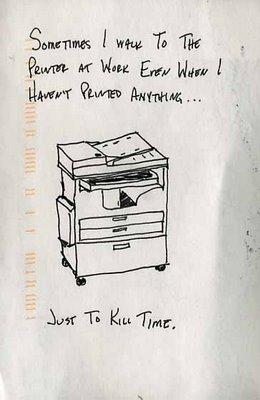 Sometimes I walk to the
printer at work even when I
haven't printed anything...
Just to kill time.